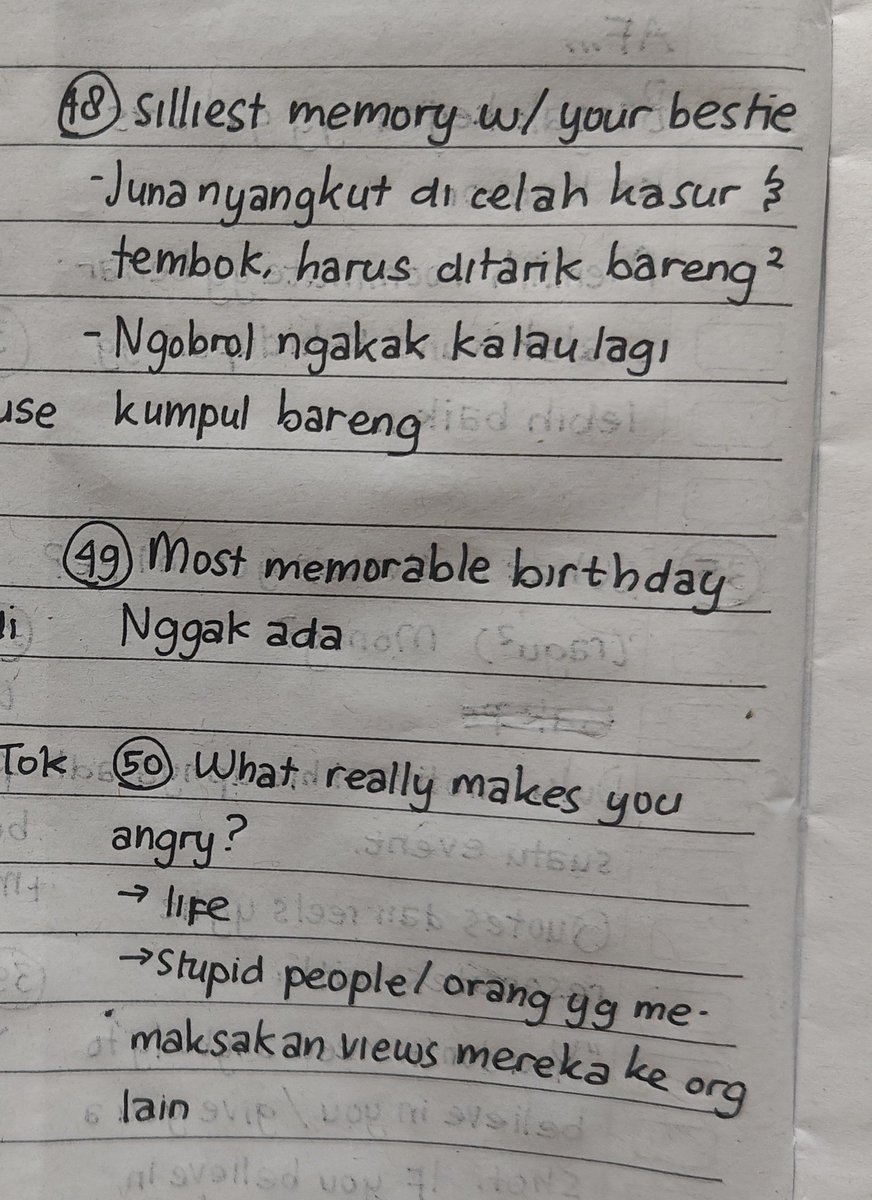 48 silliest memory w/ your bestie
- Juna nyangkut di celah kasur &
tembok, harus ditarik bareng²
- Ngobrol ngakak kalau lagi
use kumpul bareng
49 Most memorable birthday
Nggak ada
Tok 50 What really makes you
angry?
→ life
→ Stupid people/ orang yg me-
maksakan views mereka ke org
lain